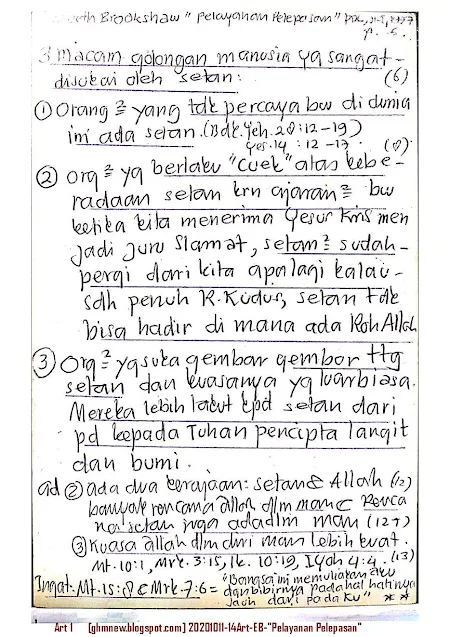 eeth Brookshaw "Pelayanan Pelepasan"
3 macam golongan manusia yg sangat -
disukai oleh setan : (6)
① Orang² yang tdk percaya bw di dunia
ini ada setan. (Bdk. Yeh. 28 : 12 - 19)
Yes. 14 : 12 - 17.
② org² yg berlaku "cuek" atas kebe -
radaan setan krn ajaran² bw
ketika kita menerima Yesus Kris men
jadi Juru Slamat, setan² sudah -
pergi dari kita apalagi kalau -
sdh penuh R. Kudus, setan tdk
bisa hadir di mana ada Roh Allah
③ Org² yg suka gembar gembor ttg
setan dan kuasanya yg luarbiasa.
Mereka lebih takut kpd setan dari
pd kepada Tuhan pencipta langit
dan bumi.
ad ② ada dua kerajaan : setan & Allah (12)
banyak rencana Allah dlm man Renca
na setan juga ada dlm man (12+)
③ Kuasa Allah dlm diri man lebih kuat.
Mt. 10:1, Mrk. 3:15, Lk. 10:19, 1 Yoh 4:4. (13)
Ingat. Mt. 15:8 & Mrk. 7:6 = "Bangsa ini memuliakan aku
dgn bibirnya padahal hatinya
Jauh dari pada Ku"
Art 1 [ghmnew.blogspot.com] 20201011-14Art-EB-"Pelayanan Pelepasan"